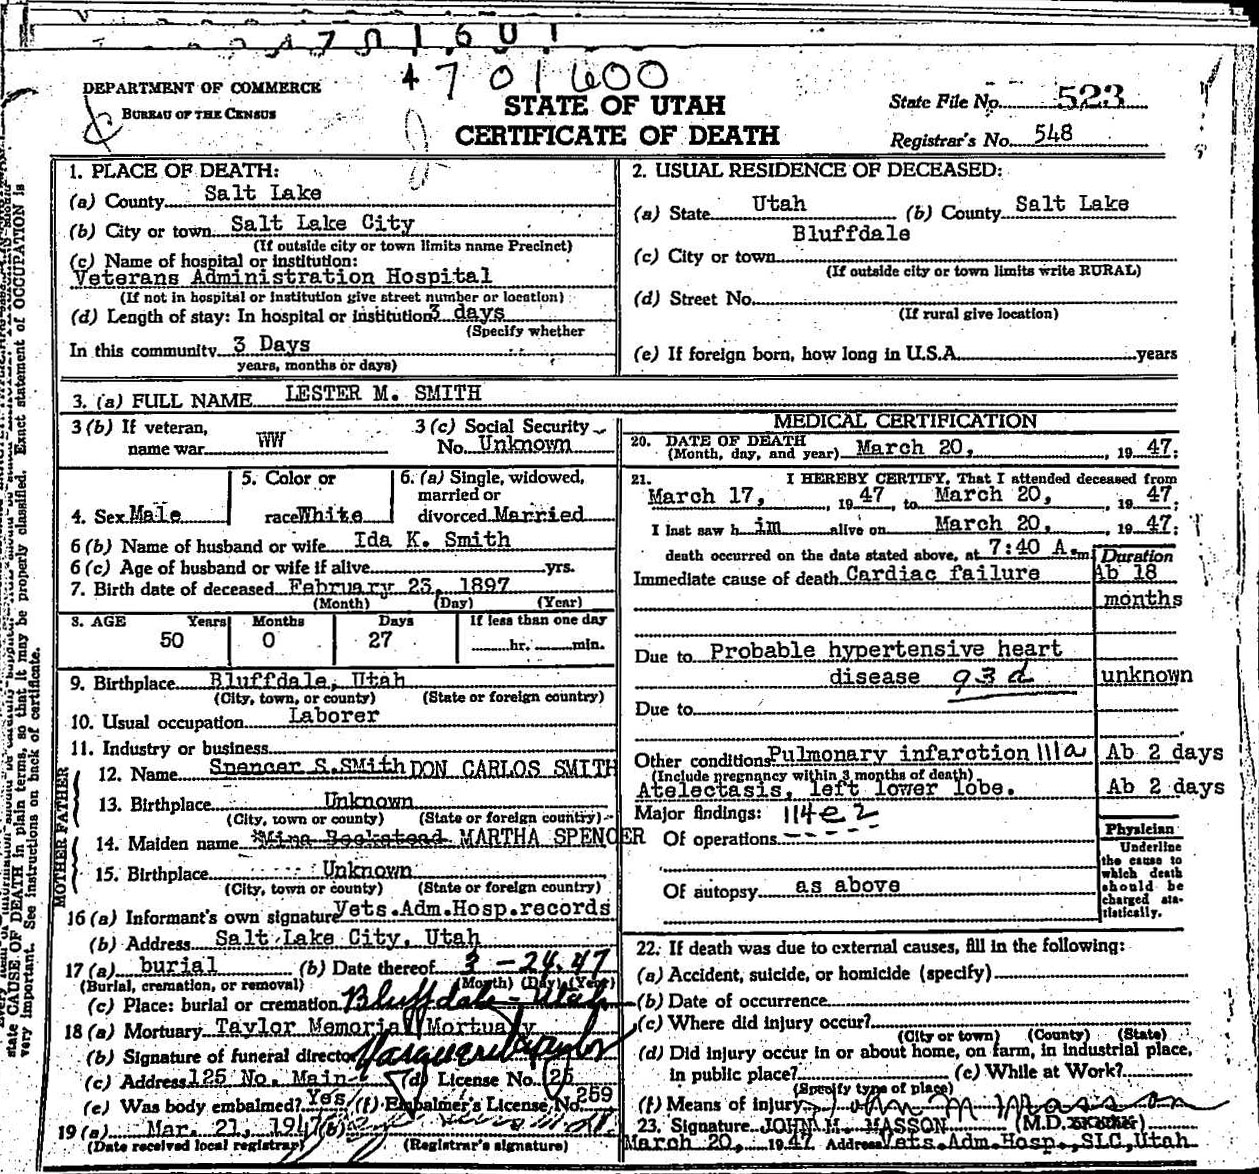 4701601
4701600
DEPARTMENT OF COMMERCE
BUREAU OF THE CENSUS
STATE OF UTAH
CERTIFICATE OF DEATH
State File No. 523
Registrar's No. 548
1. PLACE OF DEATH:
(a) County Salt Lake
(b) City or town Salt Lake City
(If outside city or town limits name Precinct)
(c) Name of hospital or institution:
Veterans Administration Hospital
(If not in hospital or institution give street number or location)
(d) Length of stay: In hospital or institution 3 days
(Specify whether
In this community 3 Days
years, months or days)
2. USUAL RESIDENCE OF DECEASED:
(a) State Utah (b) County Salt Lake
Bluffdale
(c) City or town
(If outside city or town limits write RURAL)
(d) Street No.
(If rural give location)
(e) If foreign born, how long in U.S.A. years
3. (a) FULL NAME LESTER M. SMITH
3 (b) If veteran, name war WW
3 (c) Social Security No. Unknown
4. Sex Male
5. Color or race White
6. (a) Single, widowed, married or divorced Married
6 (b) Name of husband or wife Ida K. Smith
6 (c) Age of husband or wife if alive yrs.
7. Birth date of deceased February 23, 1897
(Month) (Day) (Year)
8. AGE Years Months Days If less than one day
50 0 27 hr. min.
9. Birthplace Bluffdale, Utah
(City, town, or county) (State or foreign country)
10. Usual occupation Laborer
11. Industry or business
FATHER
12. Name Spencer S. SMith DON CARLOS SMITH
13. Birthplace Unknown
(City, town or county) (State or foreign country)
MOTHER
14. Maiden name Mina Beckstead MARTHA SPENCER
15. Birthplace Unknown
(City, town or county) (State or foreign country)
16 (a) Informant's own signature Vets.Adm.Hosp.records
(b) Address Salt Lake City, Utah
17 (a) burial (b) Date thereof 3-24-47
(Burial, cremation, or removal) (Month) (Day) (Year)
(c) Place: burial or cremation Bluffdale - Utah
18 (a) Mortuary Taylor Memorial Mortuary
(b) Signature of funeral director
(c) Address 125 No. Main (d) License No. 25
(e) Was body embalmed? Yes (f) Embalmer's License No. 259
19 (a) Mar. 21, 1947 (b)
(Date received local registrar) (Registrar's signature)
MEDICAL CERTIFICATION
20. DATE OF DEATH
(Month, day, and year) March 20, 1947.
21. I HEREBY CERTIFY, That I attended deceased from
March 17, 1947 to March 20, 1947.
I last saw him alive on March 20, 1947:
death occurred on the date stated above, at 7:40 A.m.
Duration
Immediate cause of death Cardiac failure Ab 18
months
Due to Probable hypertensive heart
disease 93d unknown
Due to
Other conditions Pulmonary infarction 111a Ab 2 days
(Include pregnancy within 3 months of death)
Atelectasis, left lower lobe. Ab 2 days
Major findings: 114e2
Of operations -----
Of autopsy as above
Physician
Underline
the cause to
which death
should be
charged sta-
tistically.
22. If death was due to external causes, fill in the following:
(a) Accident, suicide, or homicide (specify)
(b) Date of occurrence
(c) Where did injury occur?
(City or town) (County) (State)
(d) Did injury occur in or about home, on farm, in industrial place,
in public place? (e) While at Work?
(Specify type of place)
(f) Means of injury John M Masson
23. Signature JOHN M. MASSON (M.D.
March 20, 1947 Address Vets.Adm.Hosp.,SLC,Utah
state CAUSE OF DEATH in plain terms, so that it may be properly classified. Exact statement of OCCUPATION is
very important. See instructions on back of certificate.